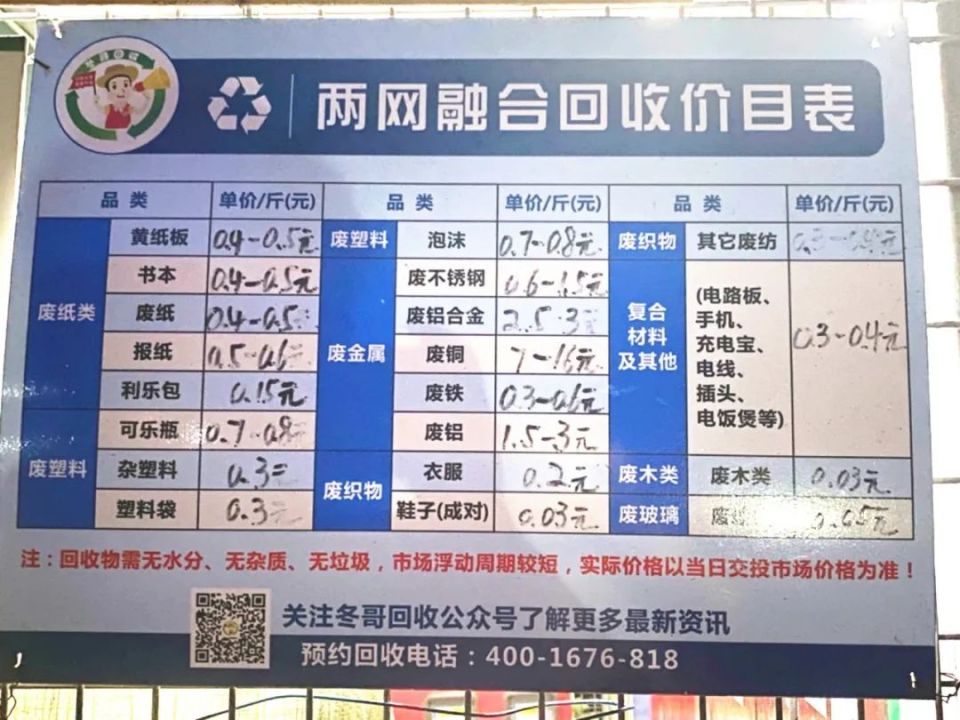 冬哥回收
两网融合回收价目表
品类 单价/斤(元) 品类 单价/斤(元) 品类 单价/斤(元)
废纸类 黄纸板 0.4-0.5元 废塑料 泡沫 0.7-0.8元 废织物 其它废纺
书本 0.4-0.5元 废金属 废不锈钢 0.6-1.5元 复合材料及其他 (电路板、手机、充电宝、电线、插头、电饭煲等) 0.3-0.4元
废纸 0.4-0.5 废铝合金 2.5-3元
报纸 0.5-0.6元 废铜 7-16元
利乐包 0.15元 废铁 0.3-0.6元
废塑料 可乐瓶 0.7-0.8 废铝 1.5-3元
杂塑料 0.3元 废织物 衣服 0.2元 废木类 废木类 0.03元
塑料袋 0.3元 鞋子(成对) 0.03元 废玻璃 废 0.05元
注：回收物需无水分、无杂质、无垃圾，市场浮动周期较短，实际价格以当日交投市场价格为准！
关注冬哥回收公众号了解更多最新资讯
预约回收电话：400-1676-818